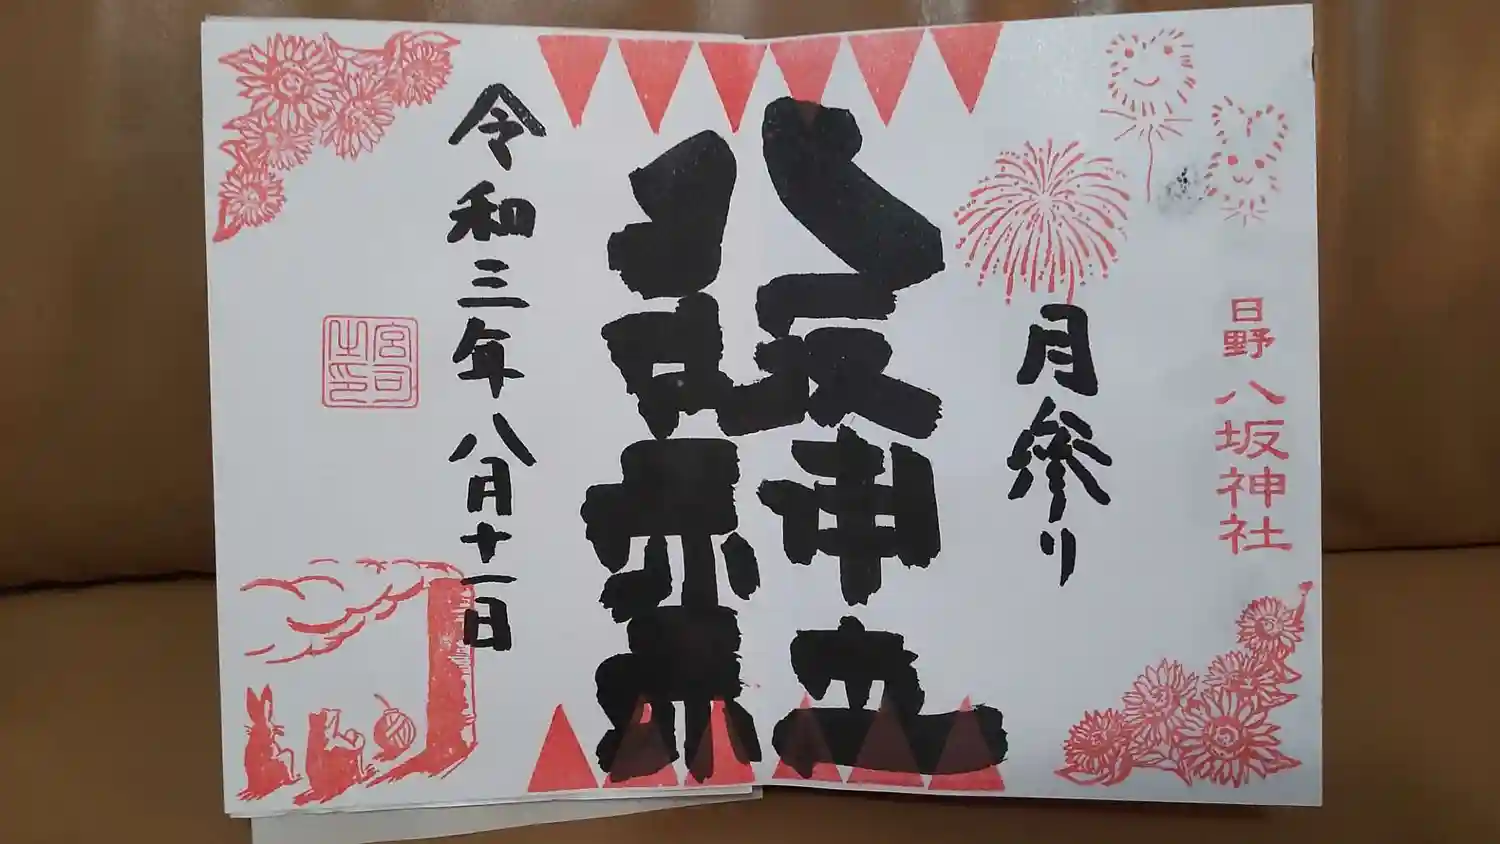 日野 八坂神社
月参り
八坂神社
令和三年八月十一日
宮司之印